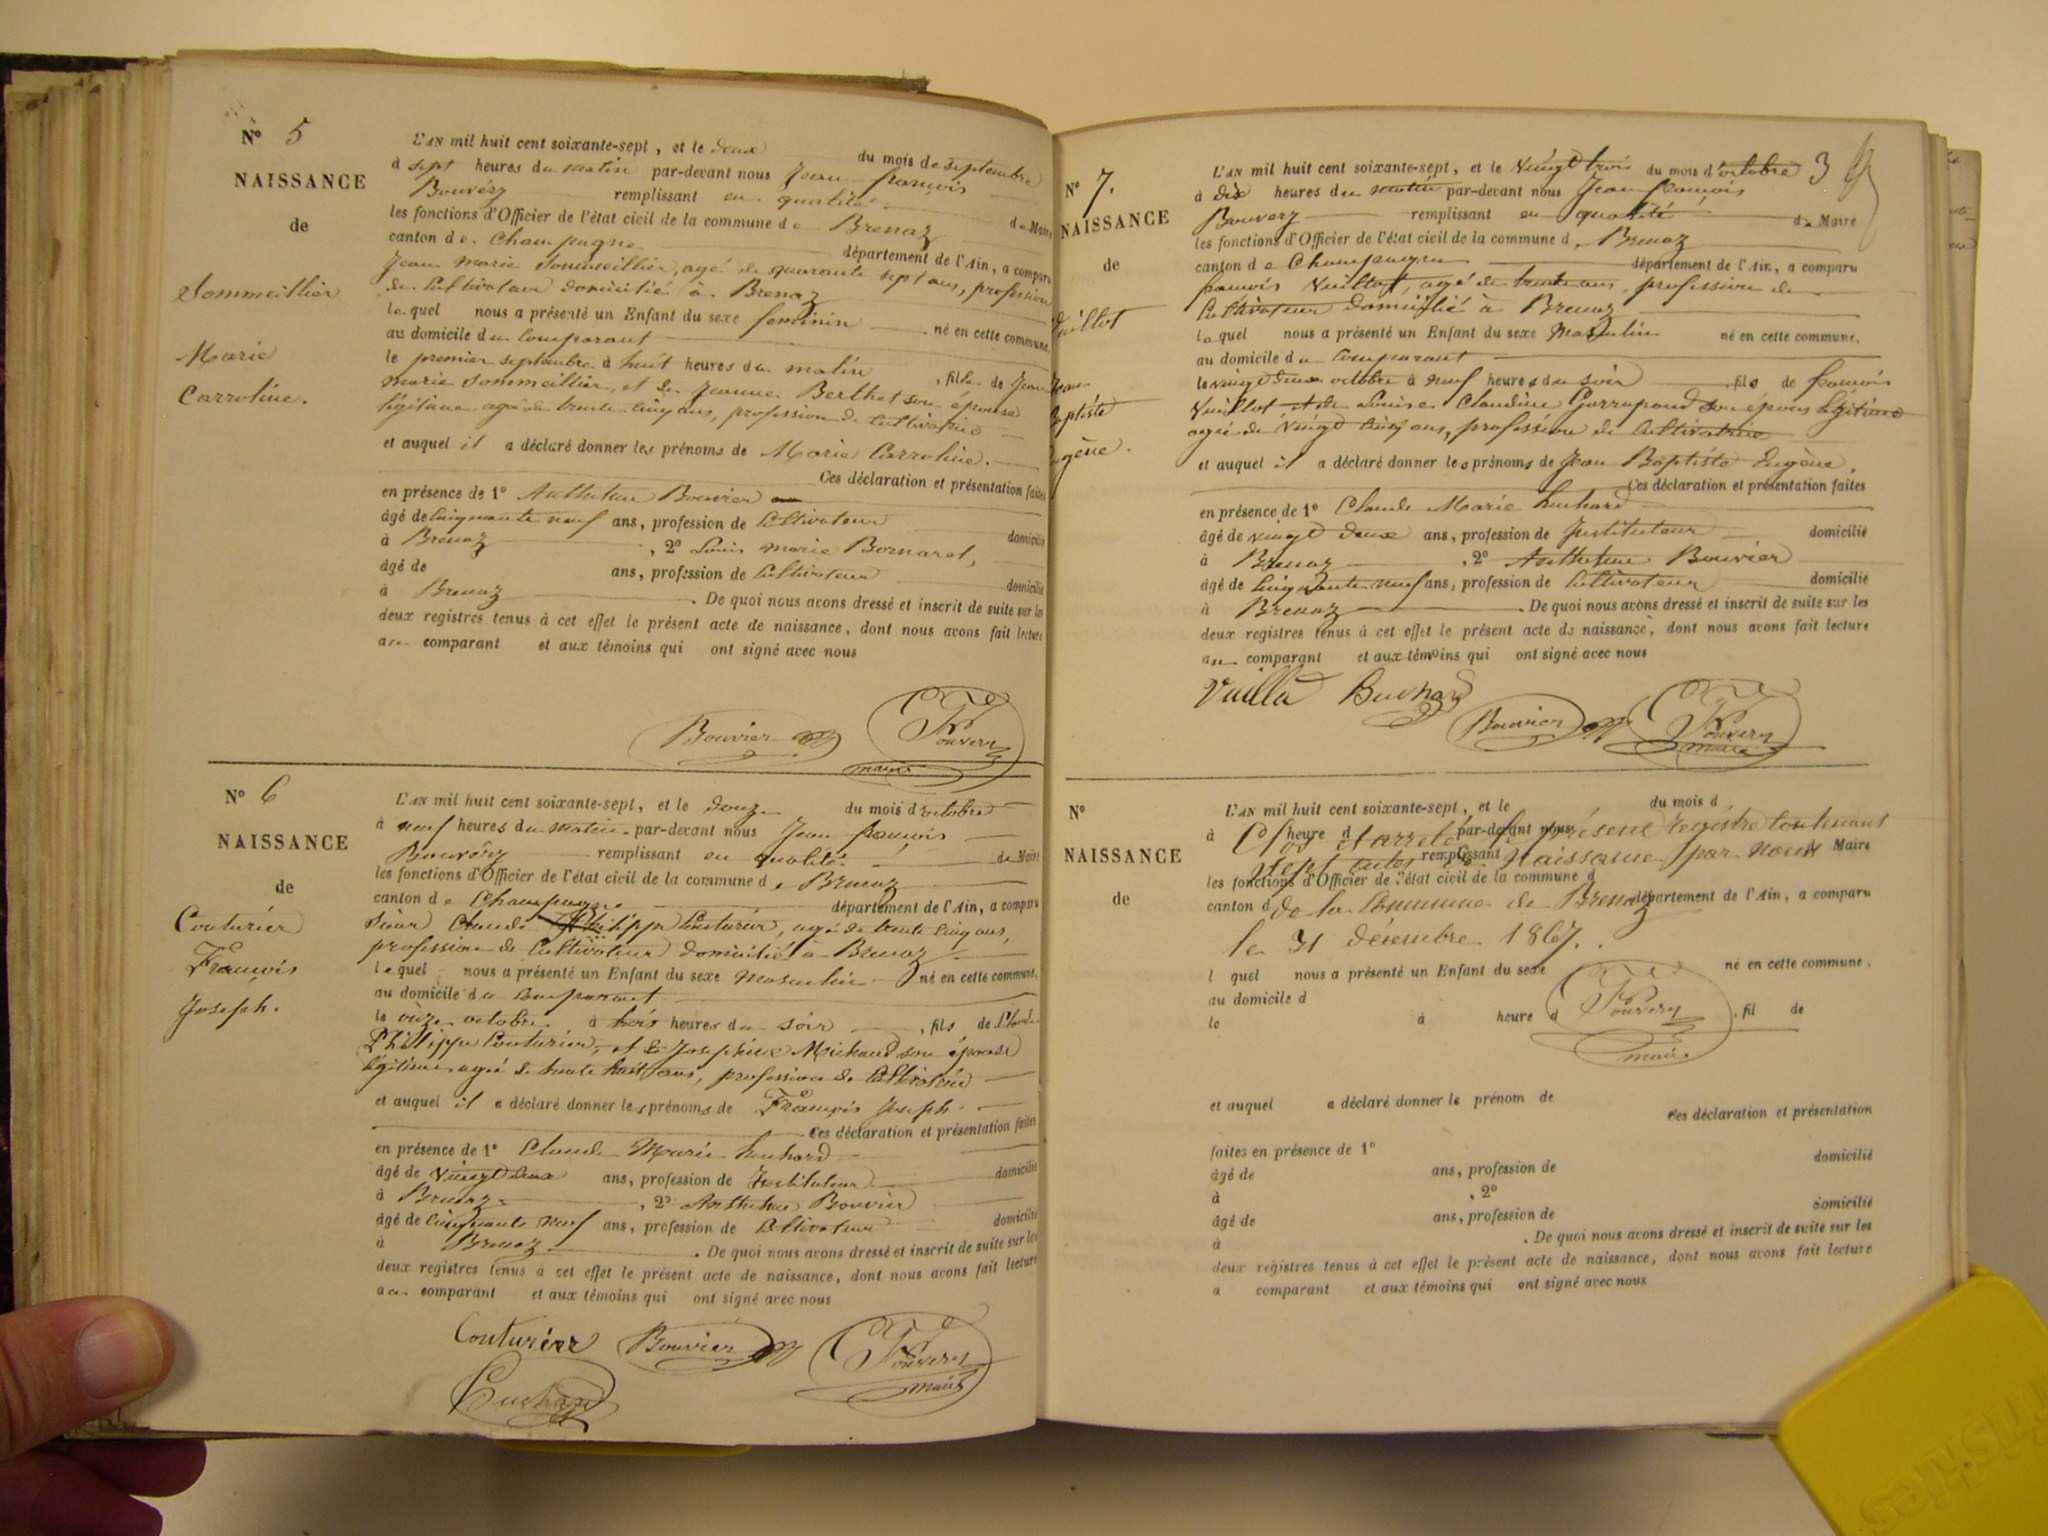 N° 5
NAISSANCE
de
Sommeillier
Marie
Carroline.
L'AN mil huit cent soixante-sept, et le deux du mois de septembre
à sept heures du matin par-devant nous Jean françois
Bouvéry remplissant en qualité de Maire
les fonctions d'Officier de l'état civil de la commune de Brenaz
canton de Champagne département de l'Ain, a comparu
Jean marie Sommeillier, agé de quarante sept ans, profession
de Cultivateur domicilié à Brenaz
lequel nous a présenté un Enfant du sexe feminin né en cette commune,
au domicile du Comparant
le premier septembre à huit heures du matin, fille de Jean
marie Sommeillier, et de Jeanne Berthet son épouse
légitime agée de trente cinq ans, profession de Cultivatrice
et auquel il a déclaré donner les prénoms de Marie Carroline.
Ces déclaration et présentation faites
en présence de 1° Anthelme Bouvier
âgé de Cinquante neuf ans, profession de Cultivateur domicilié
à Brenaz, 2° Louis marie Bornarel,
âgé de ans, profession de Cultivateur domicilié
à Brenaz. De quoi nous avons dressé et inscrit de suite sur les
deux registres tenus à cet effet le présent acte de naissance, dont nous avons fait lecture
au comparant et aux témoins qui ont signé avec nous
Bouvier Bouvery
maire
N° 6
NAISSANCE
de
Couturier
François
Joseph.
L'AN mil huit cent soixante-sept, et le douze du mois d'octobre
à neuf heures du matin par-devant nous Jean françois
Bouvéry remplissant en qualité de Maire
les fonctions d'Officier de l'état civil de la commune de Brenaz
canton de Champagne département de l'Ain, a comparu
Sieur Claude Philippe Couturier, agé de trente cinq ans,
profession de Cultivateur domicilié à Brenaz
lequel nous a présenté un Enfant du sexe masculin né en cette commune,
au domicile du comparant
le onze octobre à trois heures du soir, fils de Claude
Philippe Couturier, et de Joséphine Michaud son épouse
légitime, agée de trente huit ans, profession de Cultivatrice
et auquel il a déclaré donner les prénoms de François Joseph.
Ces déclaration et présentation faites
en présence de 1° Claude Marie Luchard
âgé de vingt deux ans, profession de Instituteur domicilié
à Brenaz, 2° Anthelme Bouvier
âgé de Cinquante neuf ans, profession de Cultivateur domicilié
à Brenaz. De quoi nous avons dressé et inscrit de suite sur les
deux registres tenus à cet effet le présent acte de naissance, dont nous avons fait lecture
au comparant et aux témoins qui ont signé avec nous
Couturier Bouvier Bouvery
maire
Luchard
3
N° 7.
NAISSANCE
de
Vuillot
Jean
Baptiste
Eugène.
L'AN mil huit cent soixante-sept, et le vingt trois du mois d'octobre
à dix heures du matin par-devant nous Jean françois
Bouvery remplissant en qualité de Maire
les fonctions d'Officier de l'état civil de la commune de Brenaz
canton de Champagne département de l'Ain, a comparu
françois Vuillot, agé de trente ans, profession de
Cultivateur domicilié à Brenaz
lequel nous a présenté un Enfant du sexe Masculin né en cette commune,
au domicile du Comparant
le vingt deux octobre à neuf heures du soir, fils de françois
Vuillot et de Louise Claudine son épouse légitime
agée de vingt ans, profession de Cultivatrice
et auquel il a déclaré donner les prénoms de Jean Baptiste Eugène.
Ces déclaration et présentation faites
en présence de 1° Claude Marie Luchard
âgé de vingt deux ans, profession de Instituteur domicilié
à Brenaz, 2° Anthelme Bouvier
âgé de Cinquante neuf ans, profession de Cultivateur domicilié
à Brenaz. De quoi nous avons dressé et inscrit de suite sur les
deux registres tenus à cet effet le présent acte de naissance, dont nous avons fait lecture
au comparant et aux témoins qui ont signé avec nous
Vuillo Luchard Bouvier Bouvery
maire
N°
NAISSANCE
de
L'AN mil huit cent soixante-sept, et le du mois d
à heure d par-devant nous
Clos et arrêté le présent registre contenant
remplissant Maire
sept actes de naissance par nous
les fonctions d'Officier de l'état civil de la commune d
canton d département de l'Ain, a comparu
de la Commune de Brenaz
le 31 décembre 1867.
l quel nous a présenté un Enfant du sexe né en cette commune,
au domicile d
le à heure d , fil de
Bouvery
maire
et auquel a déclaré donner le prénom de
Ces déclaration et présentation
faites en présence de 1°
âgé de ans, profession de domicilié
à , 2°
âgé de ans, profession de domicilié
à . De quoi nous avons dressé et inscrit de suite sur les
deux registres tenus à cet effet le présent acte de naissance, dont nous avons fait lecture
a comparant et aux témoins qui ont signé avec nous